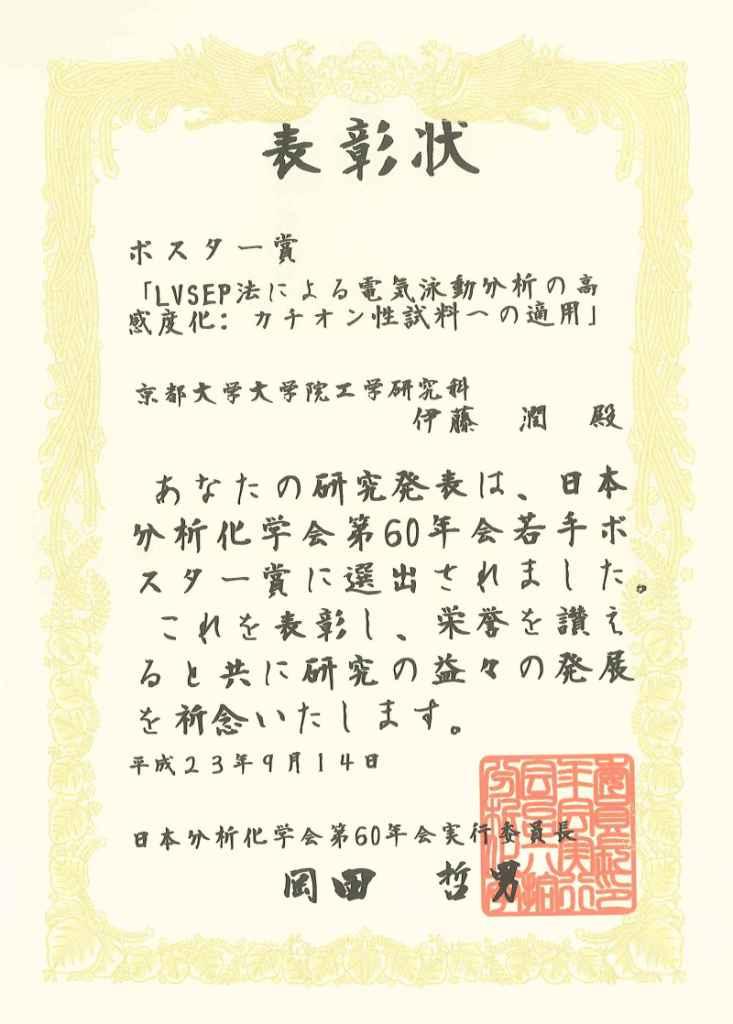 表彰状
ポスター賞
「LVSEP法による電気泳動分析の高
感度化: カチオン性試料への適用」
京都大学大学院工学研究科
伊藤 潤 殿
あなたの研究発表は、日本
分析化学会第60年会若手ポ
スター賞に選出されました。
これを表彰し、栄誉を讃え
ると共に研究の益々の発展
を祈念いたします。
平成23年9月14日
日本分析化学会第60年会実行委員長
岡田 哲男